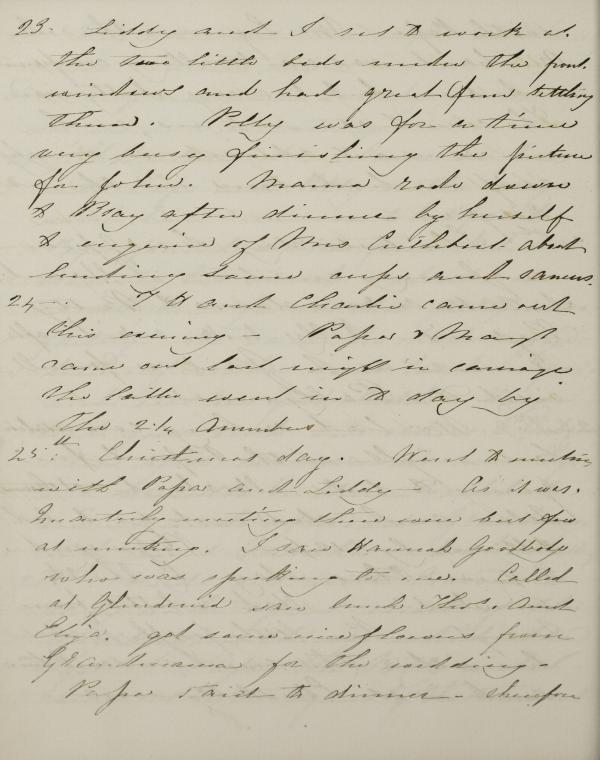 23. Liddy and I set to work at
the two little beds under the front
windows and had great fun settling
them. Polly was for a time
very busy finishing the picture
for John. Mama rode down
to Bray after dinner by herself
to enquire of Mrs Cuthbert about
lending some cups and saucers.
24 T H and Charlie came out
this evening - Papa & Margt
came out last night in carriage
the latter went in to day by
the 2 1/4 omnibus
25th. Christmas day. Went to meeting
with Papa and Liddy - As it was
Quarterly meeting there were but few
at meeting. I saw Hannah Goodbody
who was speaking to me. Called
at Glendruid saw Uncle Thos. Aunt
Eliza. got some nice flowers from
Grandmama for the wedding -
Papa staid to dinner - therefore